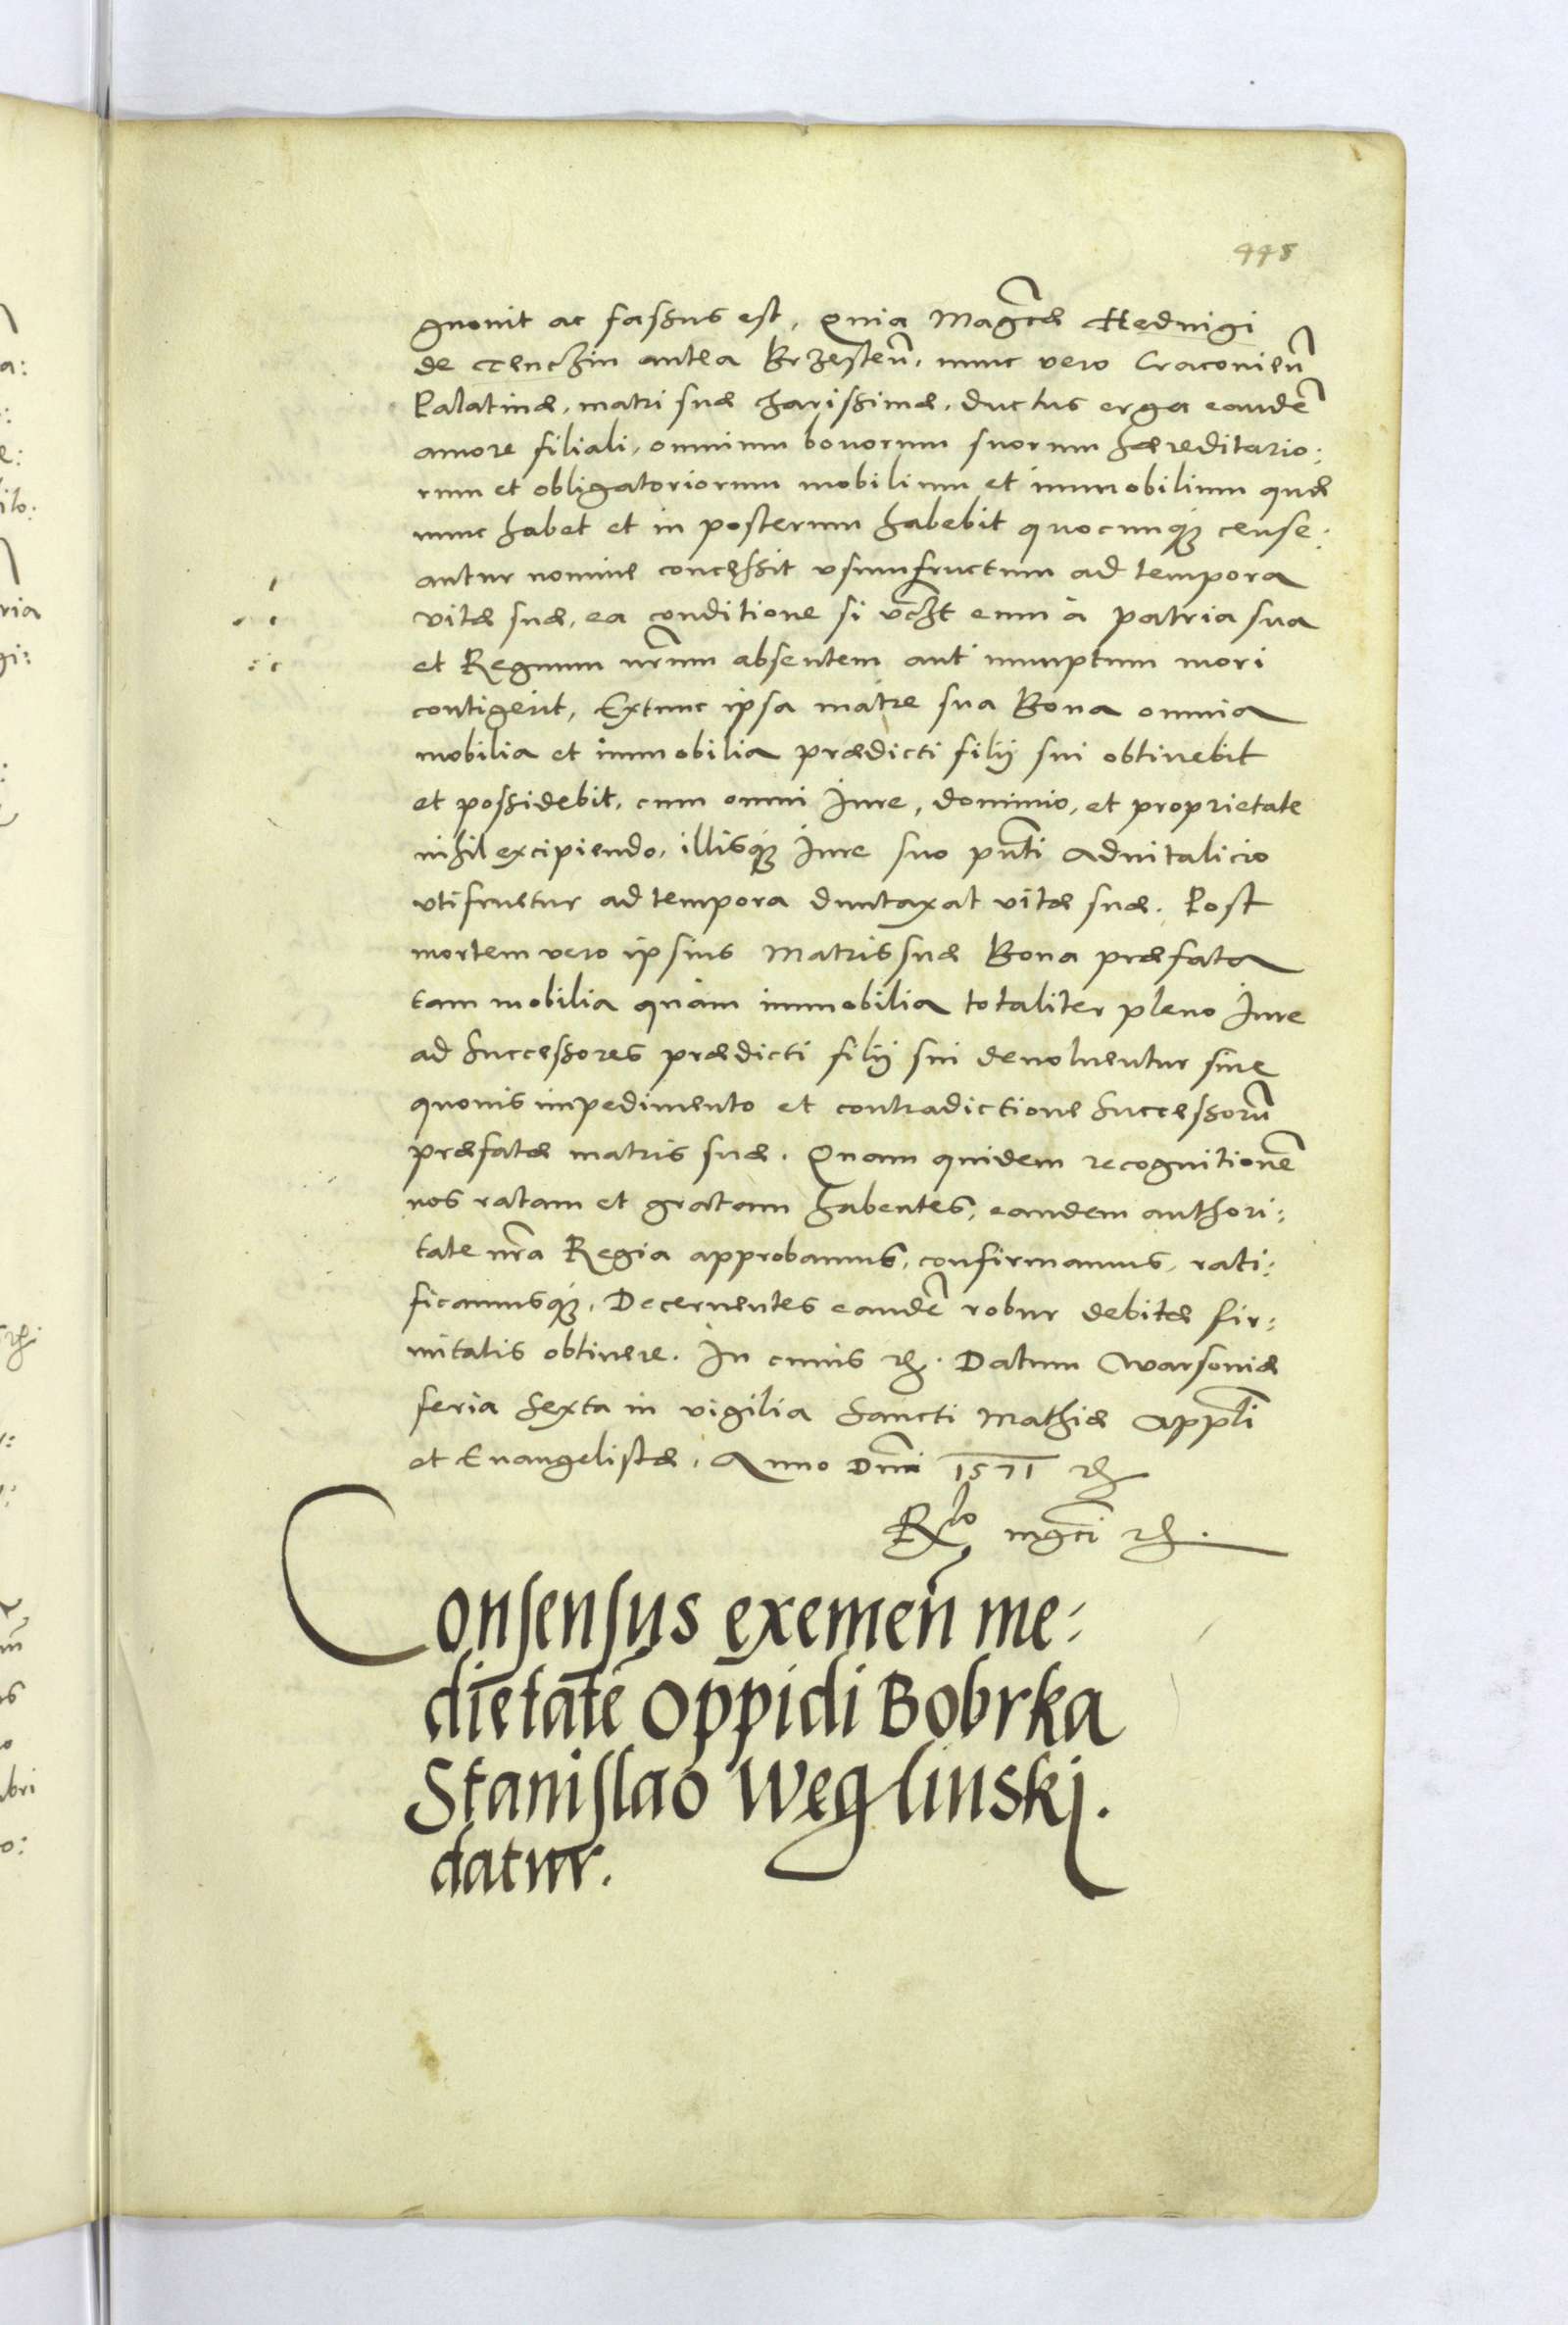 445
gnouit ac fassus est, Quia Mag̃cæ Heduigi
de Tenczin antea Brzesteñ, nunc vero Cracouieñ
Palatinæ, matri suæ charissimæ, ductus erga eandẽ
amore filiali, omnium bonorum suorum hæreditario:
rum et obligatoriorum mobilium et immobilium quæ
nunc habet et in posterum habebit quocunqȝ cense:
antur nomine concessit vsumfructum ad tempora
vitæ suæ, ea conditione si vcz̃t eum à patria sua
et Regnum nr̃um absentem aut innuptum mori
contigerit, Extunc ipsa matre sua Bona omnia
mobilia et immobilia prædicti filij sui obtinebit
et possidebit, cum omni Iure, dominio, et proprietate
nihil excipiendo, illisqȝ Iure suo pñti aduitalicio
vtifruetur ad tempora duntaxat vitæ suæ. Post
mortem vero ipsius Matris suæ Bona præfata
tam mobilia quàm immobilia totaliter pleno Iure
ad Successores prædicti filij sui deuoluentur sine
quouis impedimento et contradictione Successorũ
præfatæ matris suæ. Quam quidem recognitionẽ
nos ratam et gratam habentes, eandem authori:
tate nr̃a Regia approbamus, confirmamus, rati:
ficamusqȝ, Decernentes eandẽ robur debitæ fir:
mitatis obtinere. In cuius ꝛc. Datum Warsouiæ
feria Sexta in vigilia Sancti Mathiæ Appl̃i
et Euangelistæ, Anno Dñi 1571 ꝛc
Rlo mg̃ci ꝛc.
Consensus exemeñ me-
dietatẽ Oppidi Bobrka
Stanislao Węglinskj.
datur.